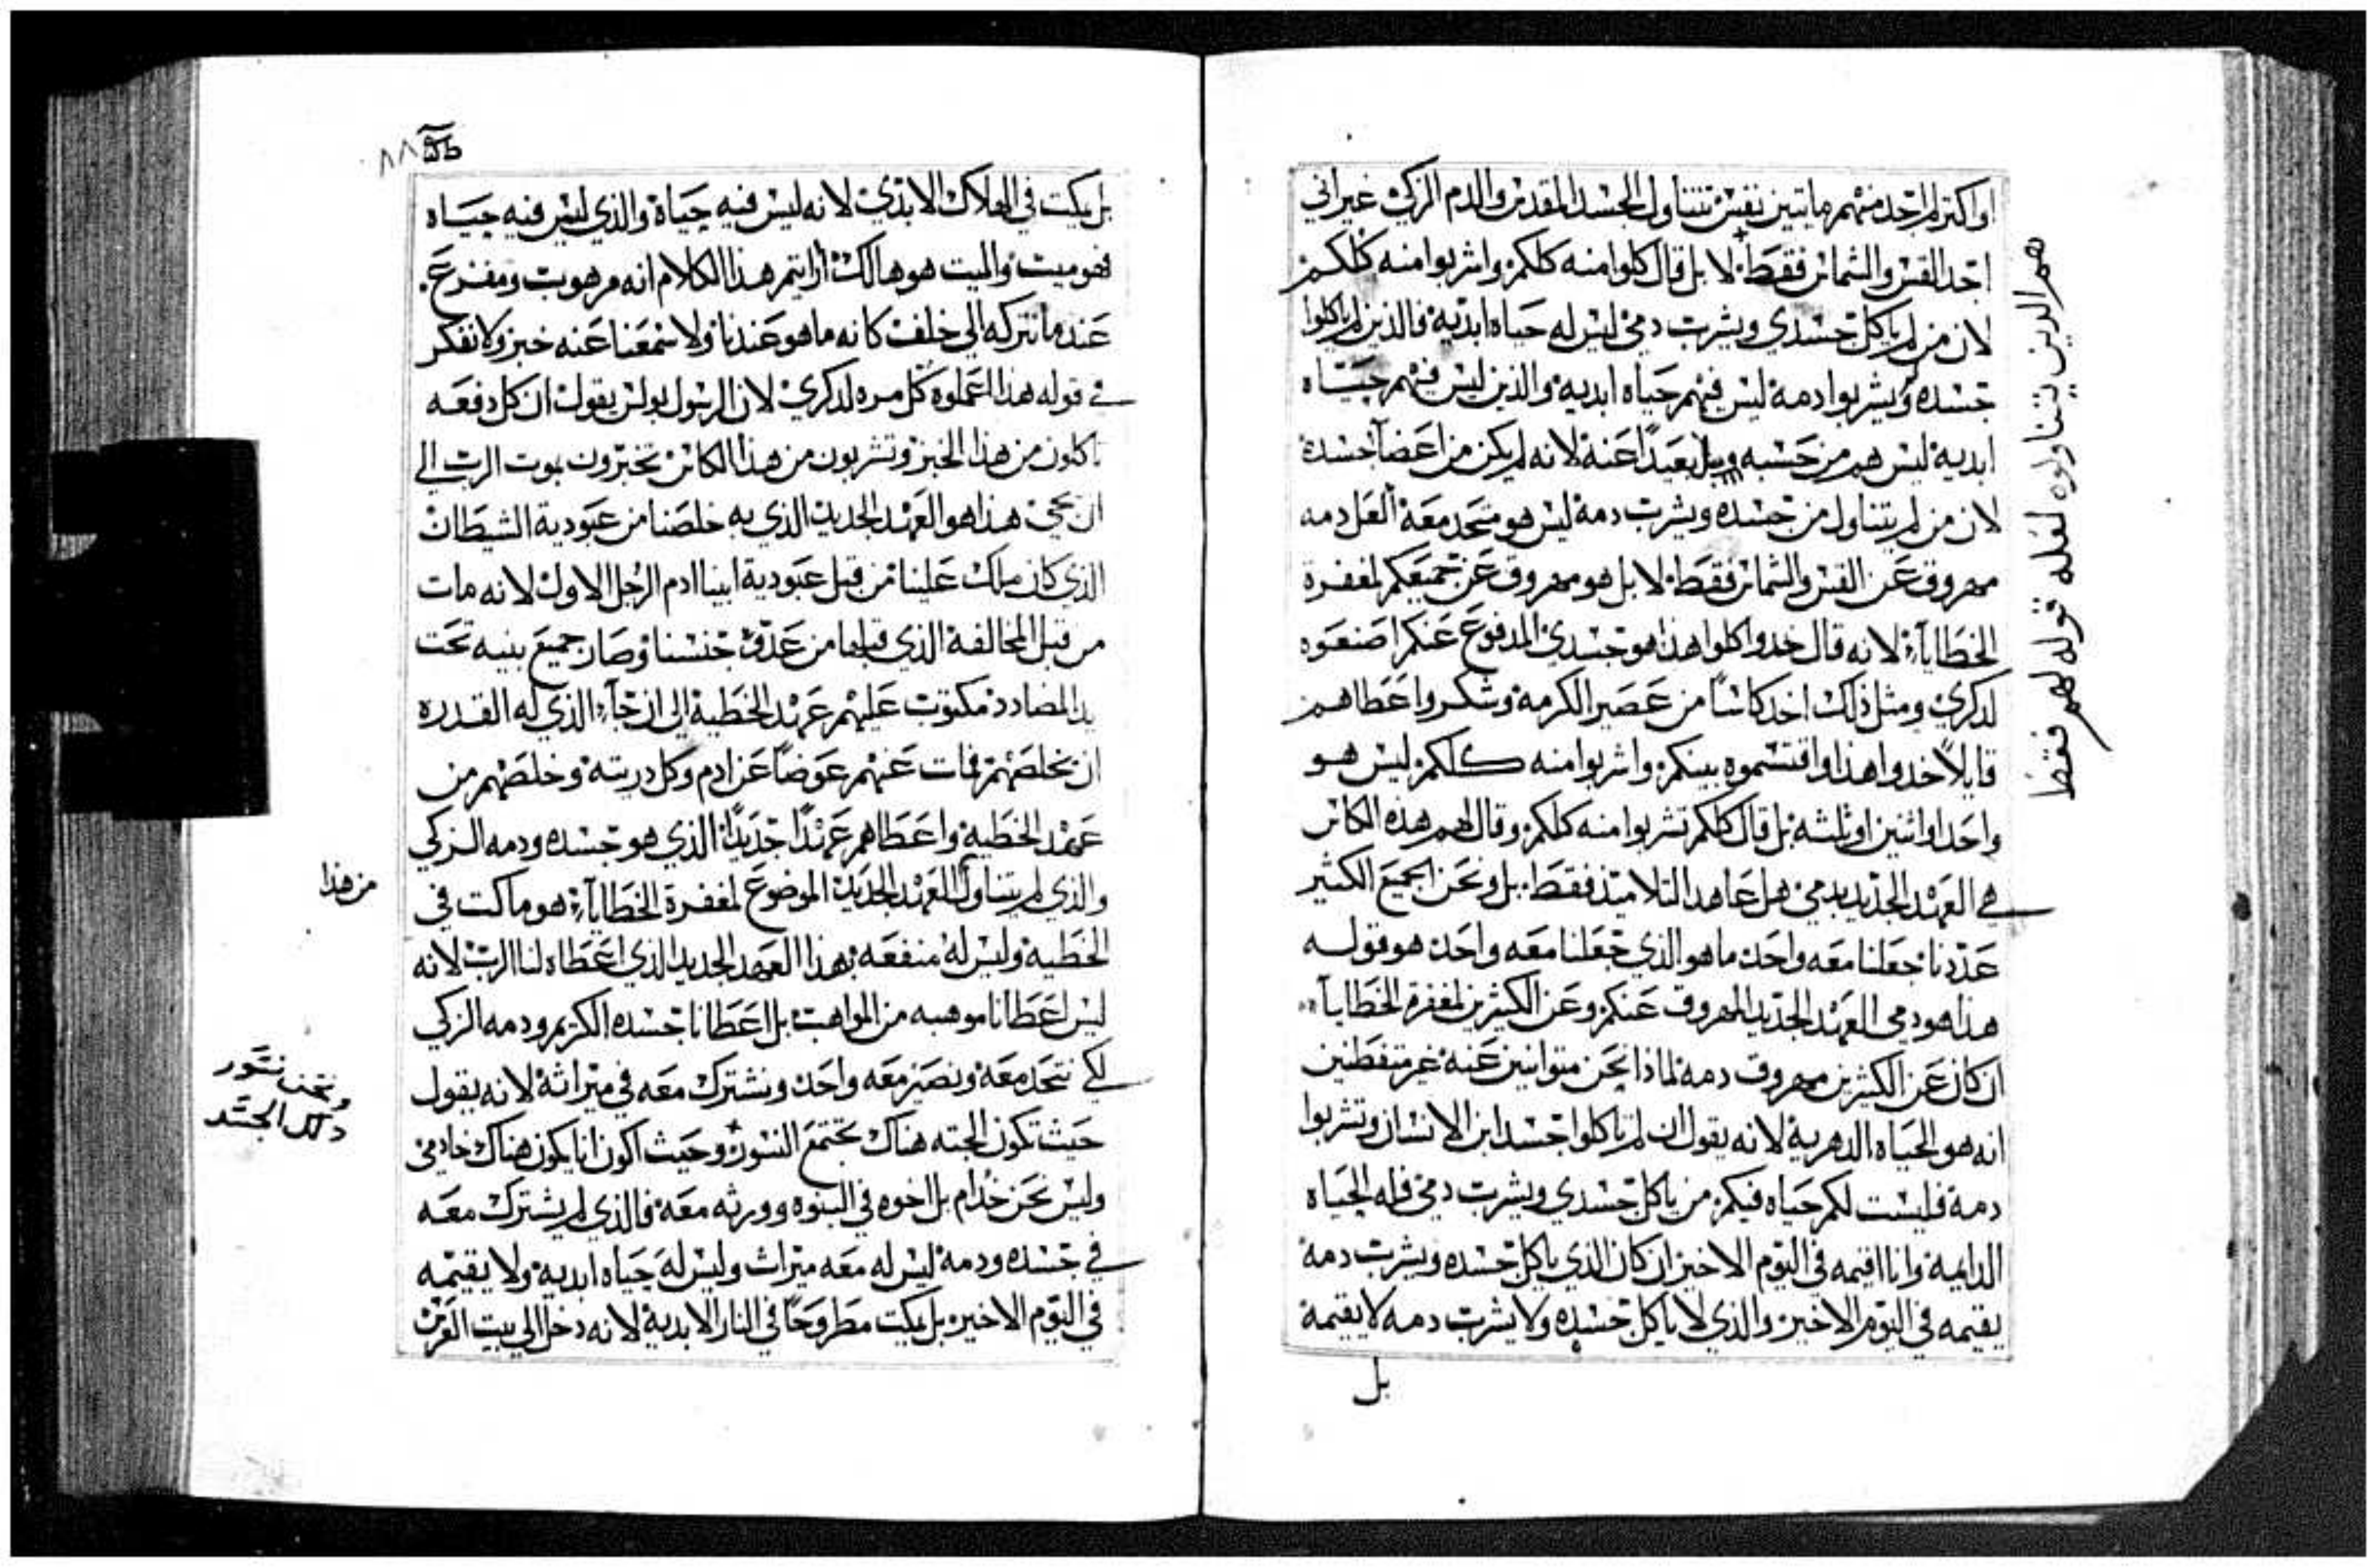 او اكتر لم اجد منهم مايتين نفس تتناول الجسد المقدس والدم الزكي غير اني
اجد القس والشماس فقط لا بل قال كلوا منه كلكم واشربوا منه كلكم
لان من لم ياكل جسدي ويشرب دمي ليس له حياه ابديه فالذين لم ياكلوا
جسده ويشربوا دمه ليس فيهم حياه ابديه والذين ليس فيهم حياه
ابديه ليس هم من جسمه بل بعيدا عنه لانه لم يكن من اعضا جسده
لان من لم يتناول من جسده ويشرب دمه ليس هو متحد معه العل دمه
مهروق عن القس والشماس فقط لا بل هو مهروق عن جميعكم لمغفرة
الخطايا لانه قال خدوا كلوا هذا هو جسدي المدفوع عنكم اصنعوه
لدكري ومثل ذلك اخد كاسا من عصير الكرمه وشكر واعطاهم
قايلا خدوا هذا واقتسموه بينكم واشربوا منه كلكم ليس هو
واحد او اثنين او ثلثه بل قال كلكم تشربوا منه كلكم وقال لهم هذه الكاس
هي العهد الجديد بدمي هل عاهد التلاميد فقط بل ونحن الجميع الكثير
عددنا جعلنا معه واحد ما هو الذي جعلنا معه واحد هو قوله
هذا هو دمي العهد الجديد المهروق عنكم وعن الكثيرين لمغفرة الخطايا
ان كان عن الكثيرين مهروق دمه لماذا نحن متوانين عنه غير متفطنين
انه هو الحياه الدهريه لانه يقول ان لم تاكلوا جسد ابن الانسان وتشربوا
دمه فليست لكم حياه فيكم من ياكل جسدي ويشرب دمي فله الحياه
الدايمه وانا اقيمه في اليوم الاخير ان كان الذي ياكل جسده ويشرب دمه
يقيمه في اليوم الاخير والذي لا ياكل جسده ولا يشرب دمه لا يقيمه
بل
هم الدين يتناولوه لعله قوله لهم فقط
٨٨
بل يمكت في الهلاك الابدي لانه ليس فيه حياة والذي ليس فيه حياه
فهو ميت والميت هو هالك ارايتم هذا الكلام انه مرهوب ومفزع
عندما نتركه الي خلف كانه ما هو عندنا ولا سمعنا عنه خبر ولا نفكر
في قوله هذا اعملوه كل مره لدكري لان الرسول بولس يقول ان كل دفعه
تاكلون من هذا الخبز وتشربون من هذا الكاس تخبرون بموت الرب الي
ان يجي هذا هو العهد الجديد الذي به خلصنا من عبودية الشيطان
الذي كان ملك علينا من قبل عبودية ابينا ادم الرجل الاول لانه مات
من قبل المخالفة الذي قبلها من عدو جنسنا وصار جميع بنيه تحت
يد المضادد مكتوب عليهم عهد الخطية الي ان جاء الذي له القدره
ان يخلصهم فمات عنهم عوضا عن ادم وكل دريته وخلصهم من
عهد الخطية واعطاهم عهدا جديدا الذي هو جسده ودمه الزكي
والذي لم يتناول العهد الجديد الموضوع لمغفرة الخطايا هو ماكت في
الخطية وليس له منفعه بهذا العهد الجديد الذي اعطاه لنا الرب لانه
ليس اعطانا موهبه من المواهب بل اعطانا جسده الكريم ودمه الزكي
لكي نتحد معه ونصير معه واحد ونشترك معه في ميراثه لانه يقول
حيث تكون الجته هناك تجتمع النسور وحيث اكون انا يكون هناك خادمي
وليس نحن خدام بل اخوه في البنوه وورثه معه فالذي لم يشترك معه
في جسده ودمه ليس له معه ميراث وليس له حياه ابديه ولا يقيمه
في اليوم الاخير بل يمكت مطروحا في النار الابدية لانه دخل الي بيت العرس
من هذا
ونحن نسور
دلك الجسد